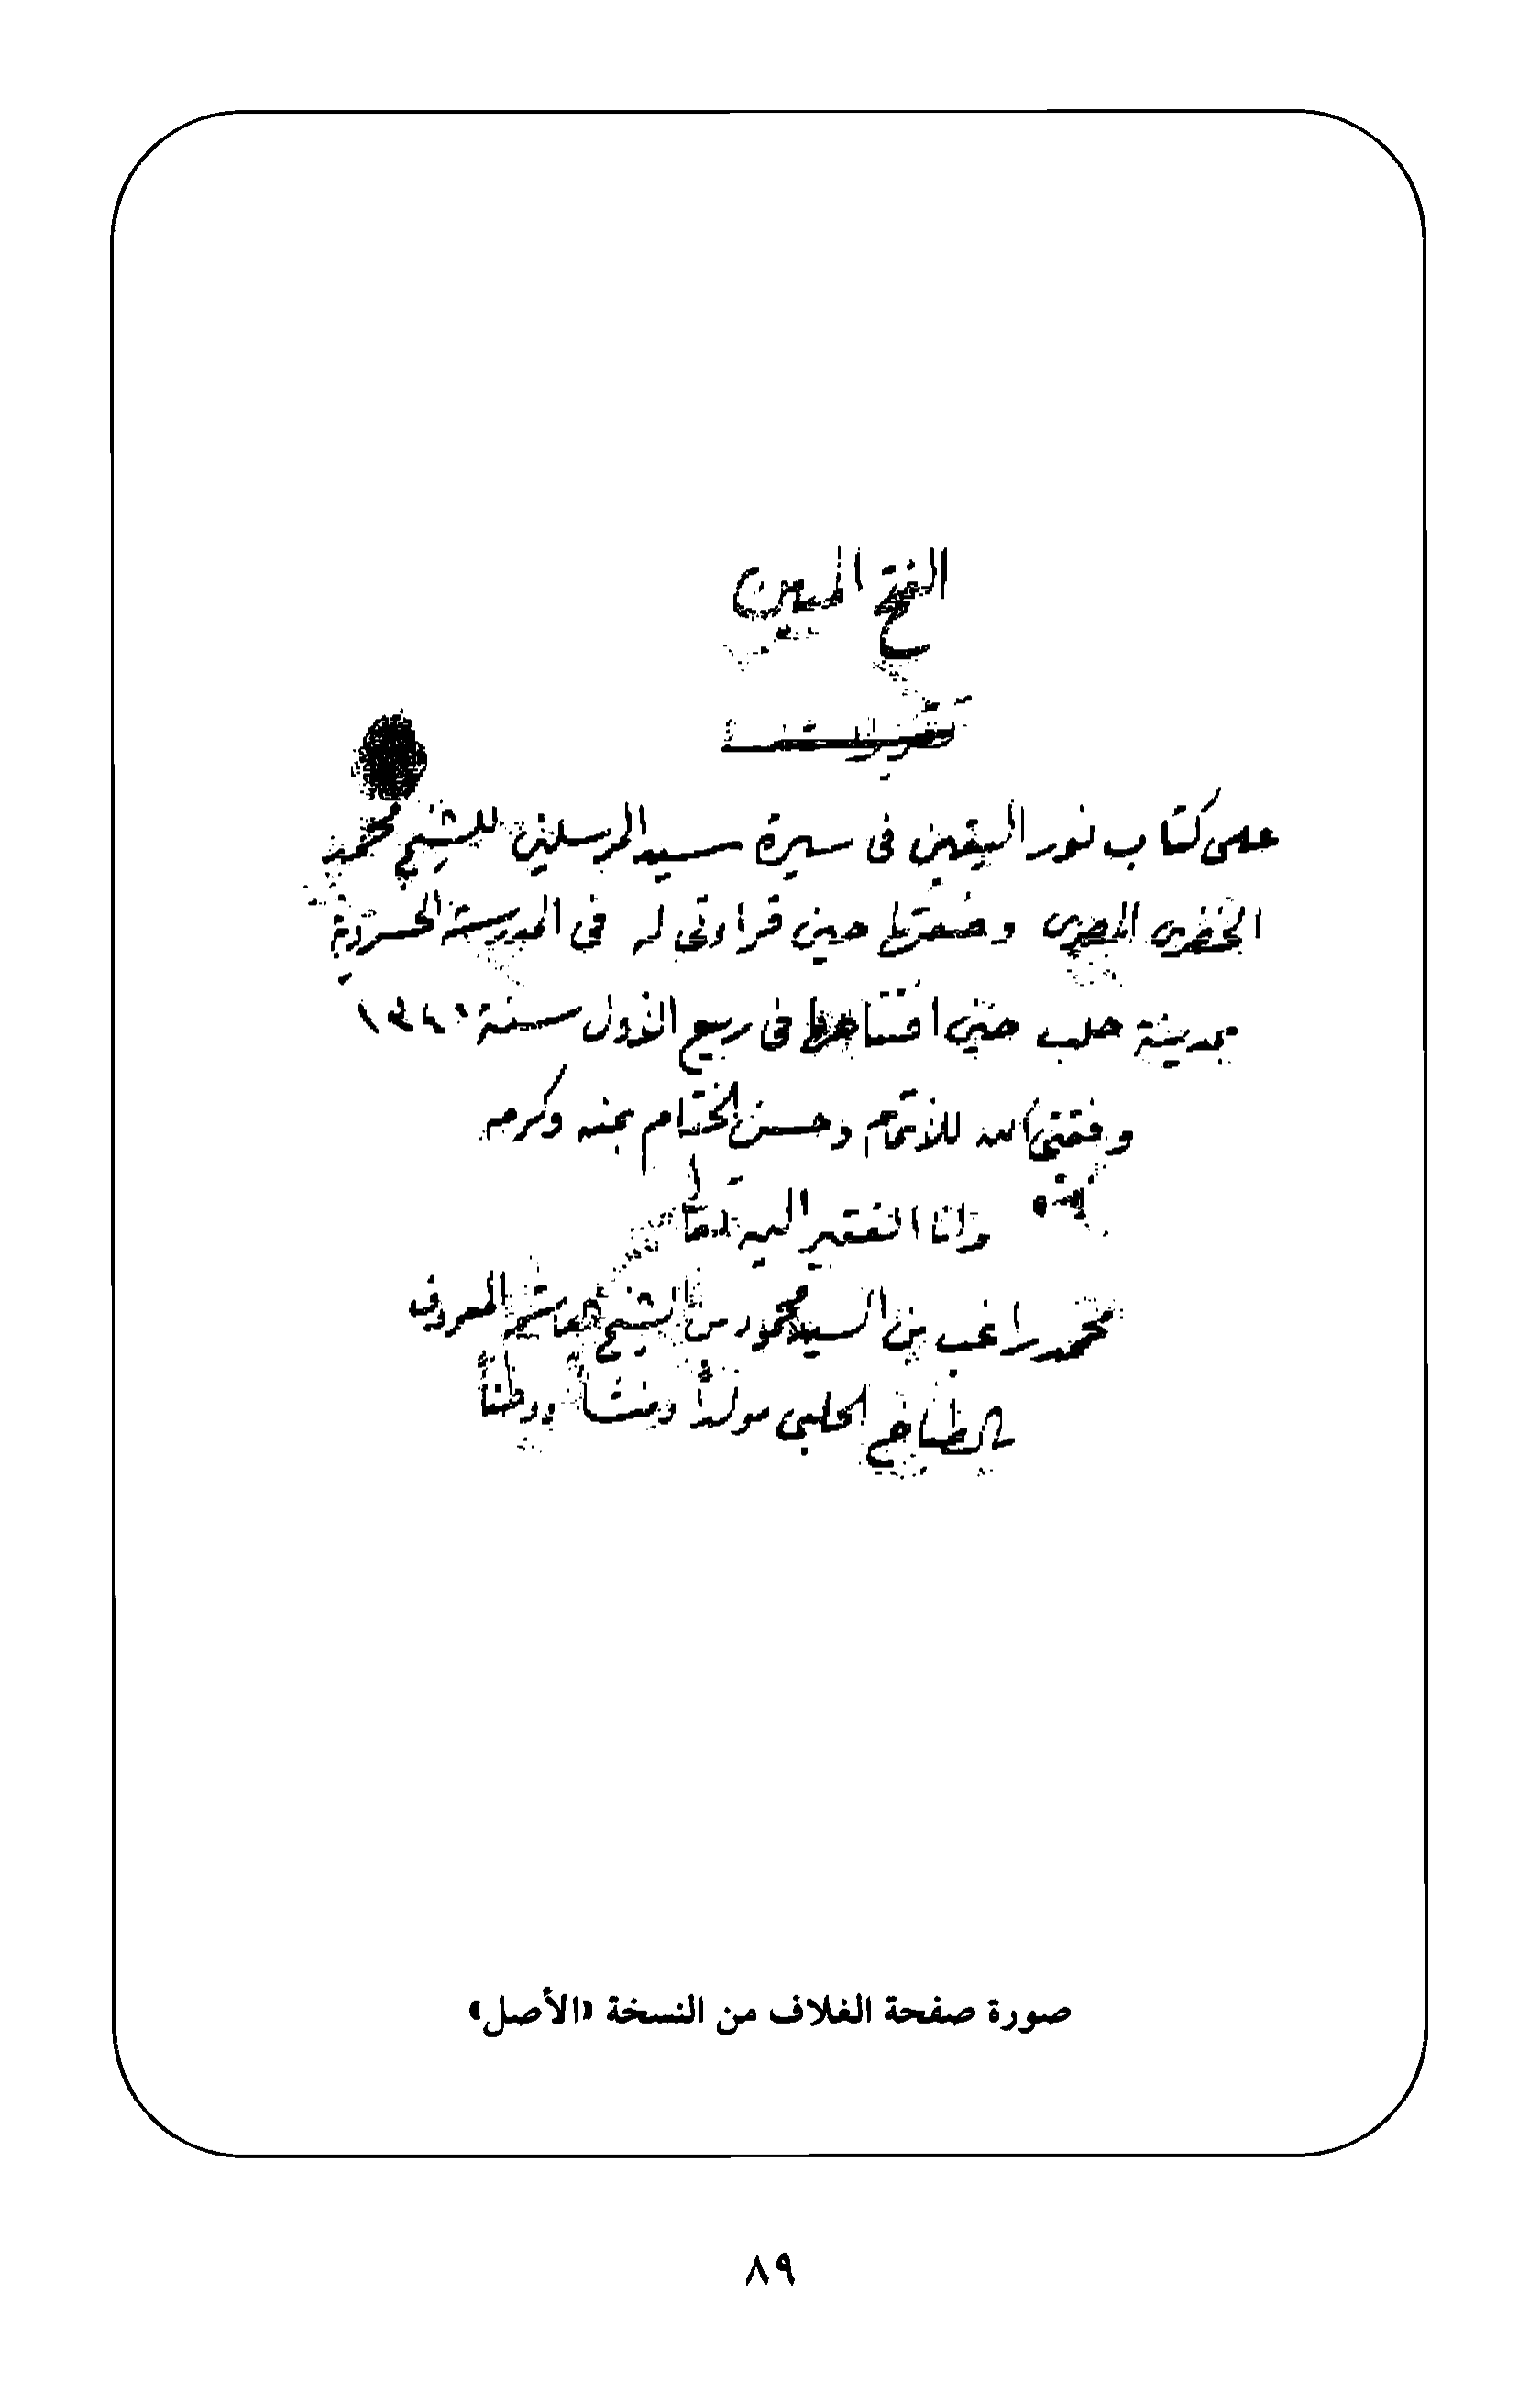 الفتح المبين
تقريرات
على كتاب نور اليقين فى سيرة سيد المرسلين للشيخ محمد
الخضرى المصرى وضعتها حين قراءتى له فى المدرسة الخسروية
بمدينة حلب حين افتتاحها فى ربيع الاول سنة ١٣٤٠
وفقنى الله للاتمام وحسن الختام بمنه وكرمه
وانا الفقير اليه تعالى
محمد راغب بن السيد محمود بن الشيخ هاشم المعروف
بالطباخ الحلبى مولداً ومنشأ ووطناً
صورة صفحة الغلاف من النسخة «الأصل»
٨٩